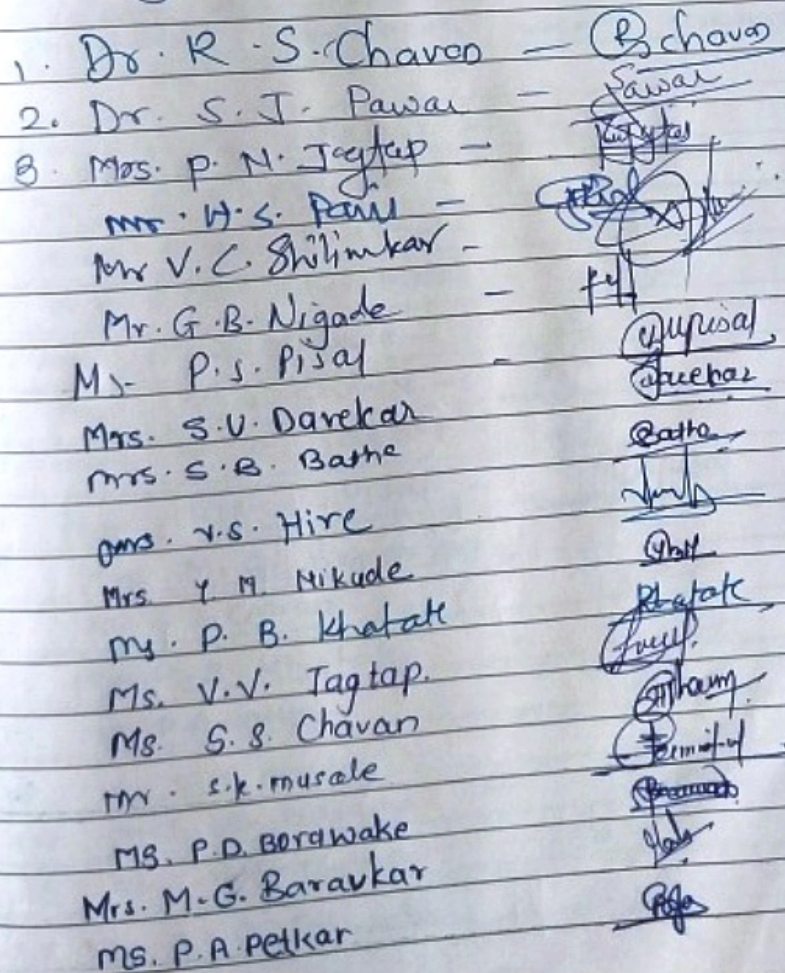 1. Dr. R. S. Chavan — RSchavan
2. Dr. S. J. Pawar — Pawar
3. Mrs. P. N. Jagtap —
Mr. H. S. —
Mr V. C. Shilimkar -
Mr. G. B. Nigade —
Ms. P. S. Pisal -
Mrs. S. U. Darekar
Mrs. S. B. Bathe Bathe
Mrs. V. S. Hire
Mrs. Y. M. Nikude
Ms. P. B. Khatate Khatate
Ms. V. V. Jagtap.
Ms. S. S. Chavan
Mr. S. K. Musale
MS. P. D. Borawake
Mrs. M. G. Baravkar
Ms. P. A. Petkar